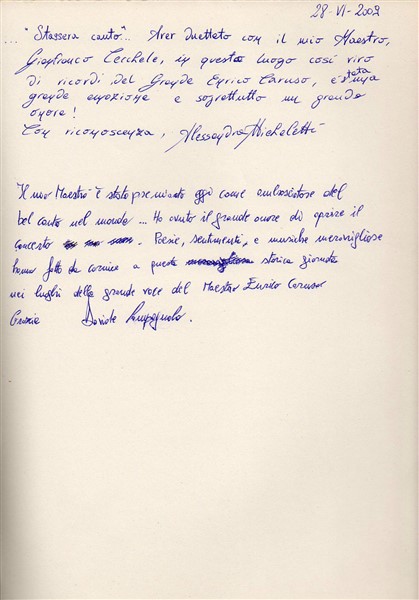 28-VI-2002
... "Stassera canto"... Aver Duettato con il mio Maestro,
Gianfranco Cecchele, in questo luogo così vivo
di ricordi del Grande Enrico Caruso, è stata una
grande emozione e soprattutto un grande
onore!
Con riconoscenza, Alessandra Micheletti
Il mio Maestro è stato premiato oggi come ambasciatore del
bel canto nel mondo... Ho avuto il grande onore di aprire il
concerto. Poesie, sentimenti, e musiche meravigliose
hanno fatto da cornice a questa storica giornata
nei luoghi della grande voce del Maestro Enrico Caruso
Grazie Davide